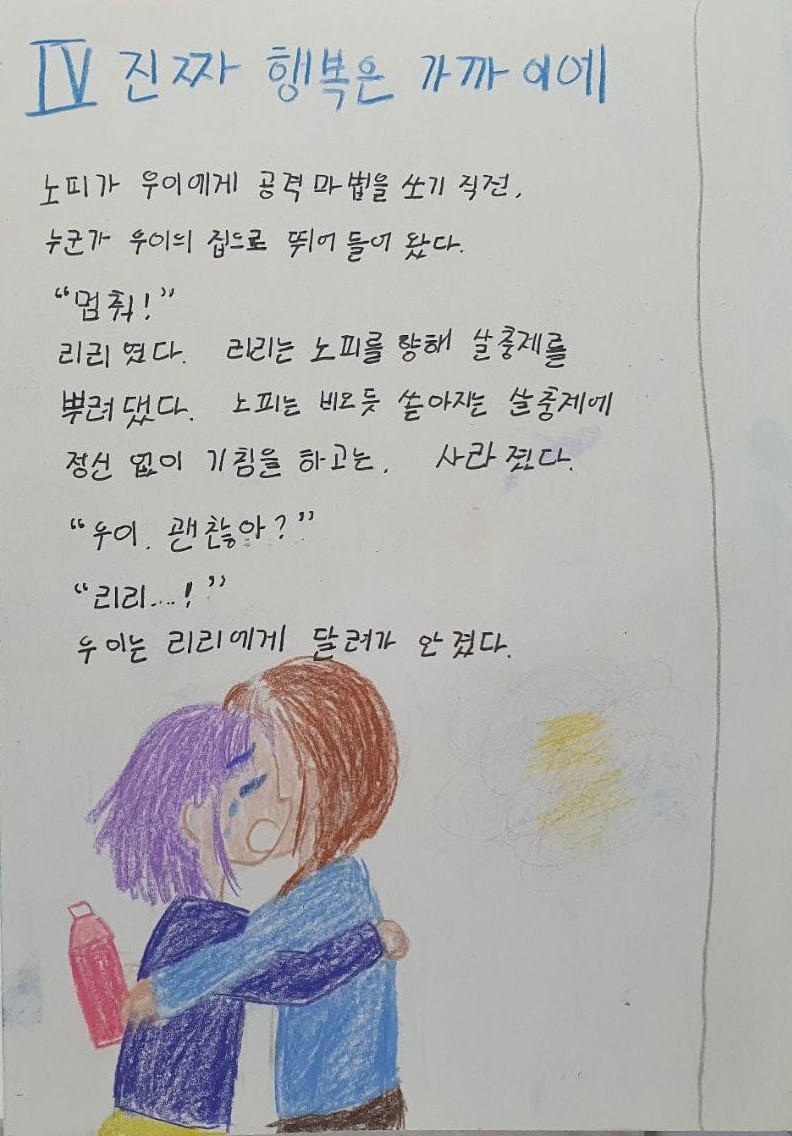 IV 진짜 행복은 가까이에
노피가 우이에게 공격 마법을 쏘기 직전,
누군가 우이의 집으로 뛰어 들어 왔다.
“멈춰!”
리리 였다. 리리는 노피를 향해 살충제를
뿌려 댔다. 노피는 비오듯 쏟아지는 살충제에
정신 없이 기침을 하고는, 사라 졌다.
“우이, 괜찮아?”
“리리....!”
우이는 리리에게 달려가 안 겼다.